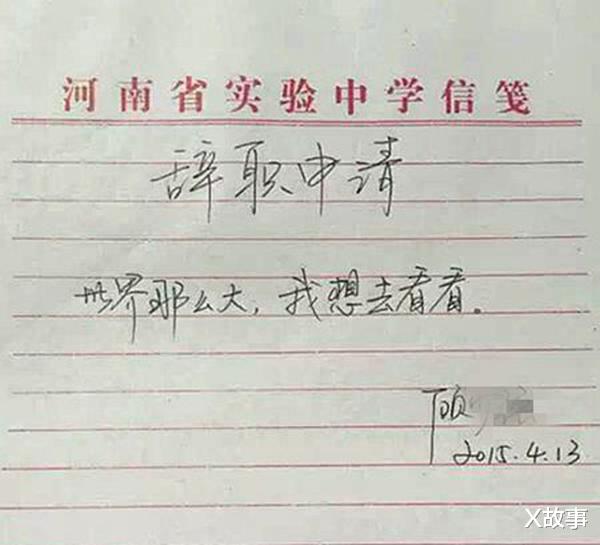 河南省实验中学信笺
辞职申请
世界那么大，我想去看看。
顾
2015.4.13
X故事